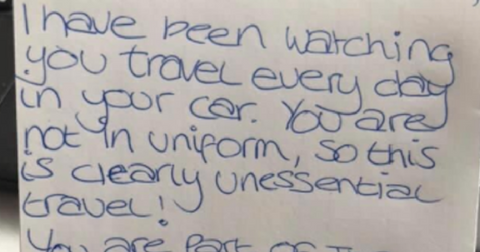 I have been watching
you travel every day
in your car. You are
not in uniform, so this
is clearly unessential
travel!
You are part of